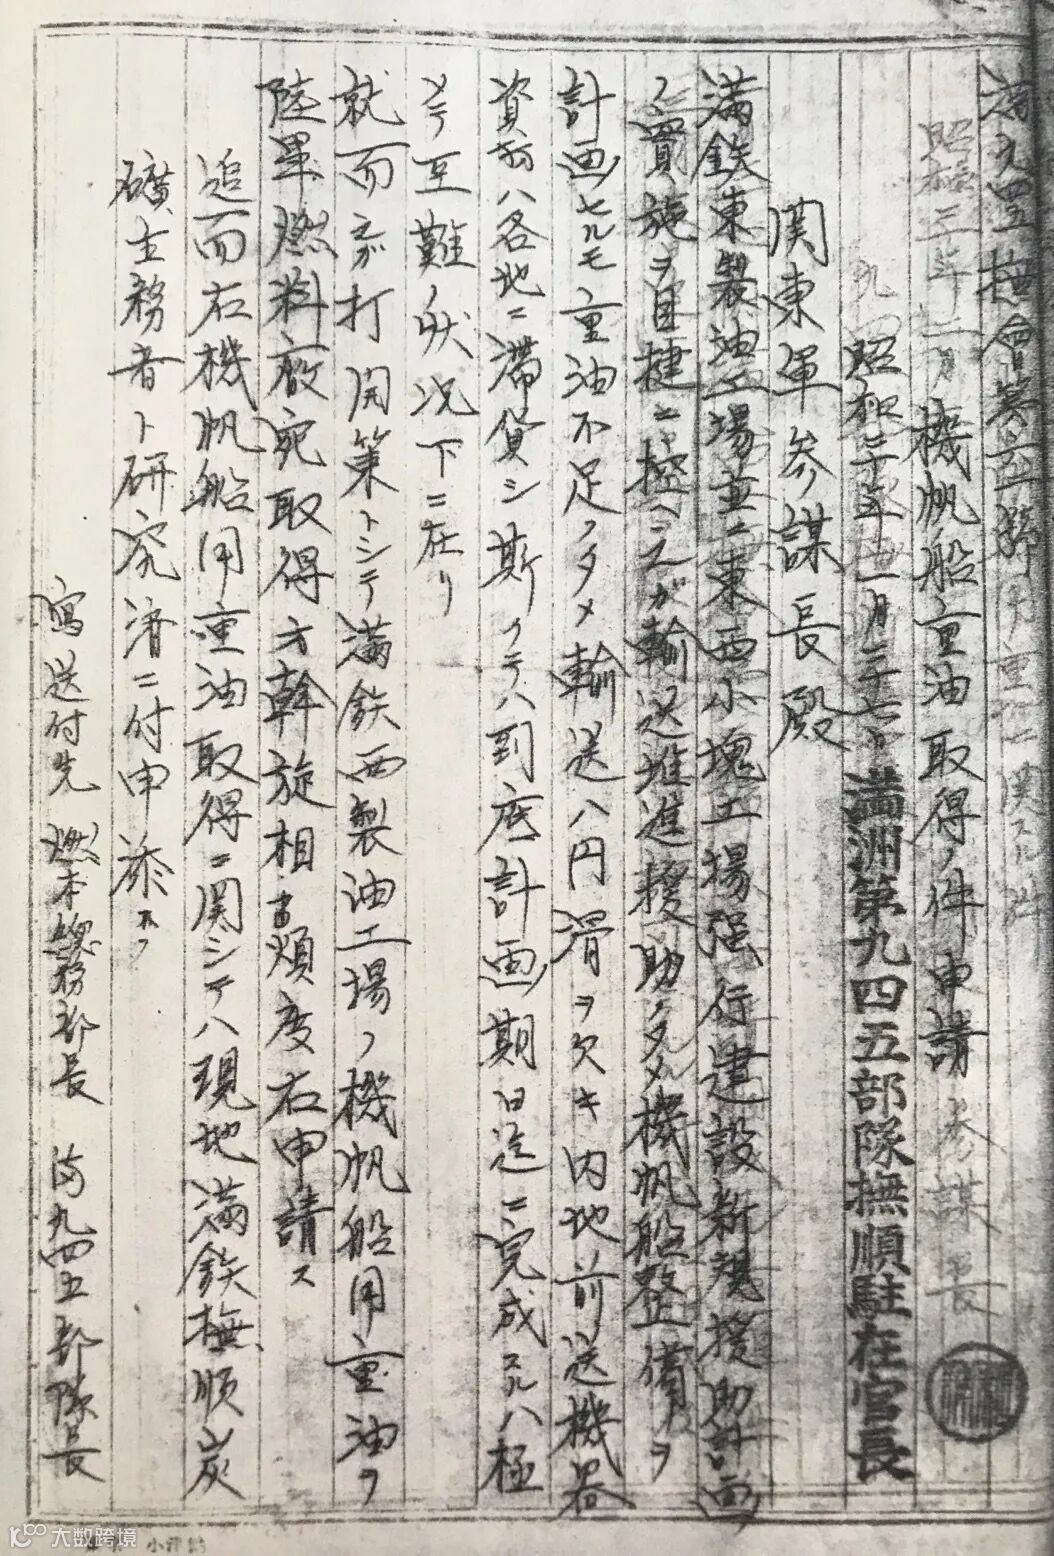 満九四五撫會第五号
機帆船重油取得ノ件申請
昭和二十年一月二十七日 満洲第九四五部隊撫順駐在官長
関東軍参謀長殿
満鉄東製油工場並ニ東西小塊工場強行建設新規援助計画
ノ實施ヲ目捷ニ控ヘスガ輸送推進援助ノタメ機帆船整備ヲ
計画セルモ重油不足ノタメ輸送ハ円滑ヲ欠キ内地前送機器
資材ハ各地ニ滞貨シ斯クテハ到底計画期日迄ニ完成スルハ極
メテ至難ノ状況下ニ在リ
就而之ガ打開策トシテ満鉄西製油工場ノ機帆船用重油ヲ
陸軍燃料廠宛取得方斡旋相煩度右申請ス
追而右機帆船用重油取得ニ関シテハ現地満鉄撫順炭
礦主務者ト研究済ニ付申添フ
寫送付先 燃本総務部長 満九四五部隊長
大数跨境